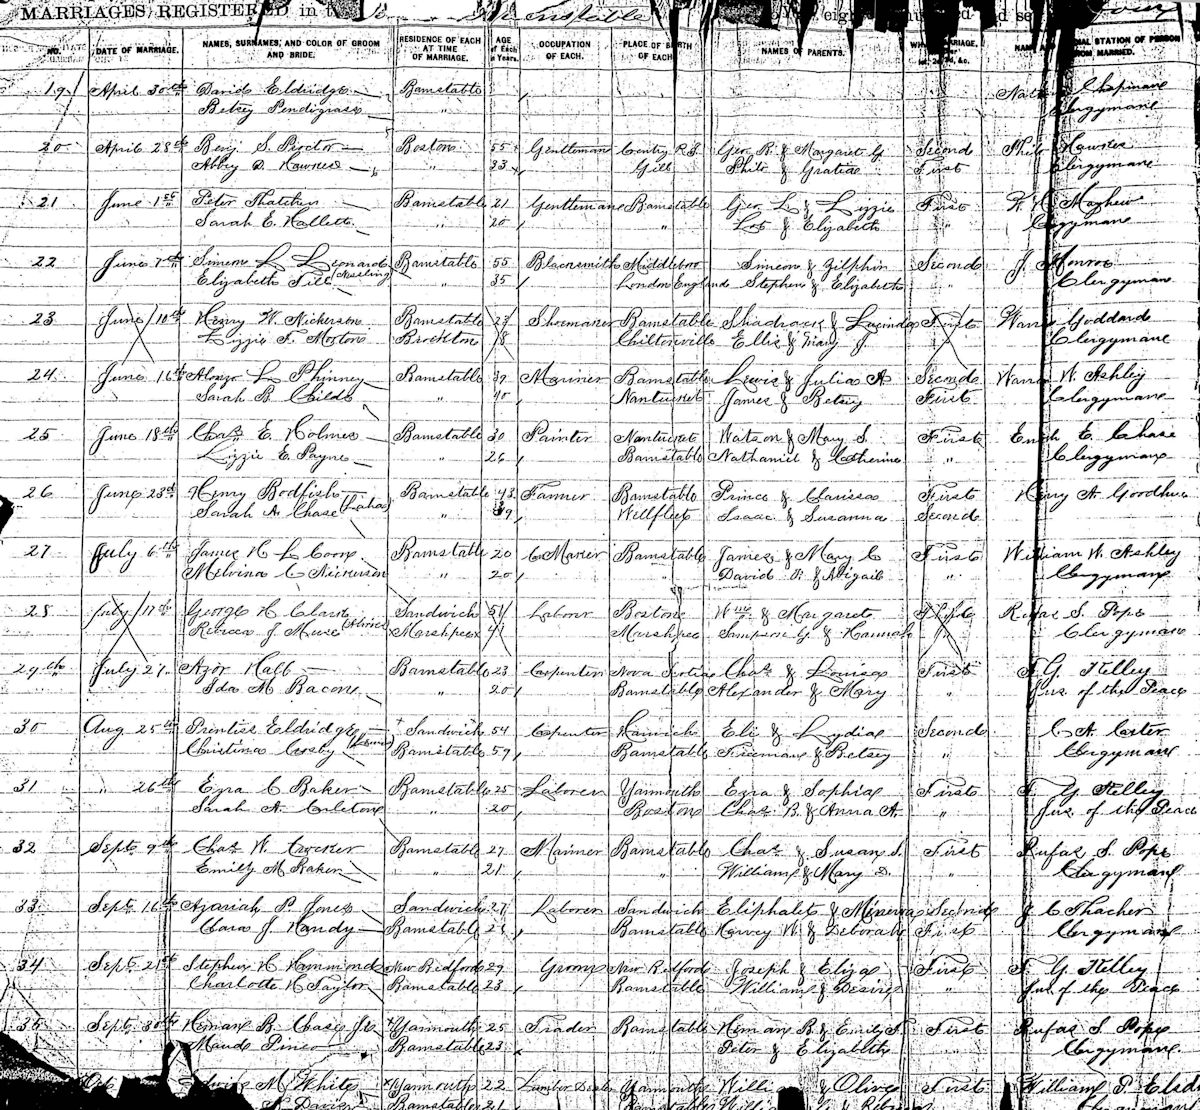 MARRIAGES REGISTERED in the
NO. DATE OF MARRIAGE. NAMES, SURNAMES, AND COLOR OF GROOM AND BRIDE. RESIDENCE OF EACH AT TIME OF MARRIAGE. AGE of Each in Years. OCCUPATION OF EACH. PLACE OF BIRTH OF EACH. NAMES OF PARENTS.
19 April 30th David Eldridge Barnstable Chapman
Betsey Pendigrass " Clergyman
20 April 28th Benj S. Proctor Boston 55 Gentleman R I Geo R. & Margaret G Second Philo Hawkes
Abby D. Hawkes " 33 Gill Philo & Gratia First Clergyman
21 June 1st Peter Thatcher Barnstable 21 Gentleman Barnstable Geo L & Lizzie First Mayhew
Sarah E. Hallett " 20 " Lot & Elizabeth " Clergyman
22 June 7th Simeon L Leonard Barnstable 55 Blacksmith Middleboro Simeon & Zilphin Second J. Monroe
Elizabeth Till (Kissling) " 35 London England Stephen & Elizabeth " Clergyman
23 June 10th Henry W. Nickerson Barnstable 23 Shoemaker Barnstable Shadrack & Lucinda First Goddard
Lizzie F. Morton Brockton 18 Chiltonville Ellis & Mary J. Clergyman
24 June 16th Alonzo L Phinney Barnstable 39 Mariner Barnstable Lewis & Julia A Second W. Ashley
Sarah B. Childs " 40 Nantucket James & Betsy First Clergyman
25 June 18th Chas E. Holmes Barnstable 30 Painter Nantucket Watson & Mary S. First E. Chase
Lizzie E. Payne " 26 Barnstable Nathaniel & Catherine " Clergyman
26 June 23d Henry Bodfish Barnstable 43 Farmer Barnstable Prince & Clarissa First Henry A. Goodhue
Sarah A. Chase " 39 Wellfleet Isaac & Susanna Second
27 July 6th James H L Coon Barnstable 20 C Maker Barnstable James & Mary C First William W. Ashley
Melvina C Nickerson " 20 " David P. & Abigail " Clergyman
28 July 17th George H. Clark Sandwich 51 Labour Boston Wm & Margaret Rufus S. Pope
Rebecca J. Muse Marshpee 41 Marshpee Sampson G. & Hannah Clergyman
29th July 27 Azor Hall Barnstable 23 Carpenter Nova Scotia Chas & Louisa First F. G. Kelley
Ida M Bacon " 20 Barnstable Alexander & Mary " Jus. of the Peace
30 Aug 25th Prentiss Eldridge Sandwich 54 Carpenter Harwich Eli & Lydia Second C A. Carter
Christina Crosby Barnstable 59 Barnstable Freeman & Betsy Clergyman
31 " 26th Ezra C Baker Barnstable 25 Laborer Yarmouth Ezra & Sophia First F. G Kelley
Sarah A. Carleton " 20 Boston Chas B. & Anna A. " Jus. of the Peace
32 Sept 9th Chas W. Crocker Barnstable 27 Mariner Barnstable Chas & Susan S. First Rufus S. Pope
Emily M. Baker " 21 " William & Mary D. " Clergyman
33 Sept 16th Azariah P. Jones Sandwich 27 Laborer Sandwich Eliphalet & Minerva Second J. C Thacher
Clara J. Handy Barnstable 23 Barnstable Harvey W. & Deborah First Clergyman
34 Sept 21st Stephen H Hammond New Bedford 29 Groom New Bedford Joseph & Eliza First F. G. Kelley
Charlotte H Taylor Barnstable 23 Barnstable William & Desire " Jus. of the Peace
35 Sept 30th Heman B. Chase Jr Yarmouth 25 Trader Barnstable Heman B & Emily F. First Rufus S. Pope
Maude Pineo Barnstable 23 " Peter & Elizabeth " Clergyman
M. White Yarmouth 22 Lumber Dealer Yarmouth & Olive First William P.
Davis Barnstable 21 Barnstable